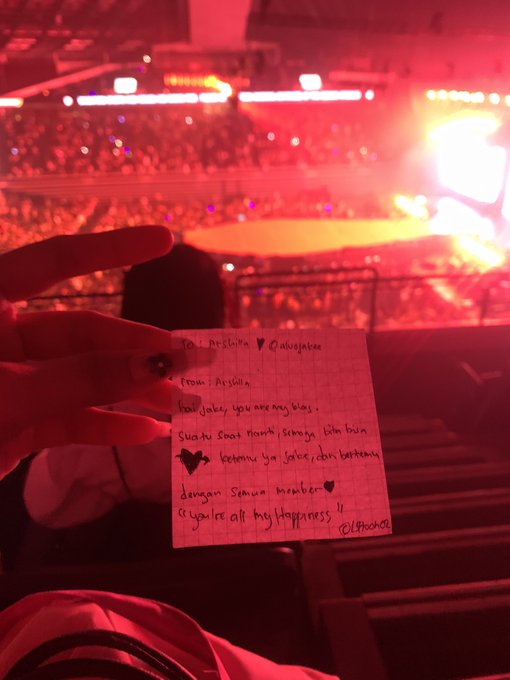 To : Arshilla ♥ @alvojakee
From : Arshilla
hai Jake, you are my bias.
Suatu saat nanti, semoga kita bisa
ketemu ya Jake, dan bertemu
dengan semua member ♥
"you're all my Happiness"